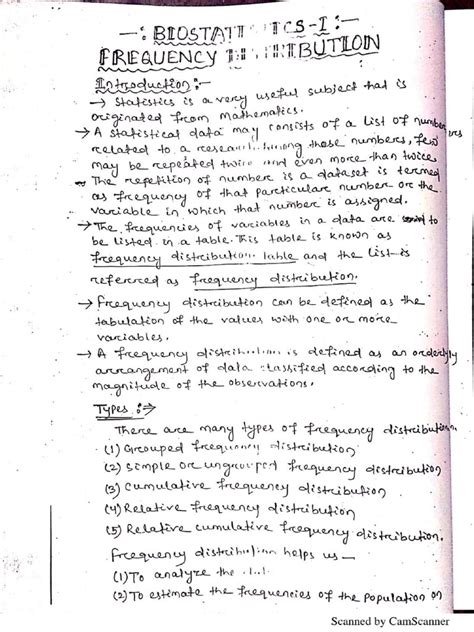 -: BIOSTATISTICS-I :-
FREQUENCY DISTRIBUTION
Introduction :-
→ Statistics is a very useful subject that is
originated from mathematics.
→ A statistical data may consists of a list of numbers
related to a research. Among those numbers, few
may be repeated twice and even more than twice.
→ The repetition of number is a dataset is termed
as frequency of that particular number or the
variable in which that number is assigned.
→ The frequencies of variables in a data are to
be listed in a table. This table is known as
frequency distribution table and the list is
referred as frequency distribution.
→ Frequency distribution can be defined as the
tabulation of the values with one or more
variables.
→ A frequency distribution is defined as an orderly
arrangement of data classified according to the
magnitude of the observations.
Types :⇒
There are many types of frequency distribution
(1) Grouped frequency distribution
(2) Simple or ungrouped frequency distribution
(3) Cumulative frequency distribution
(4) Relative frequency distribution
(5) Relative cumulative frequency distribution.
Frequency distribution helps us —
(1) To analyze the
(2) To estimate the frequencies of the population on
Scanned by CamScanner